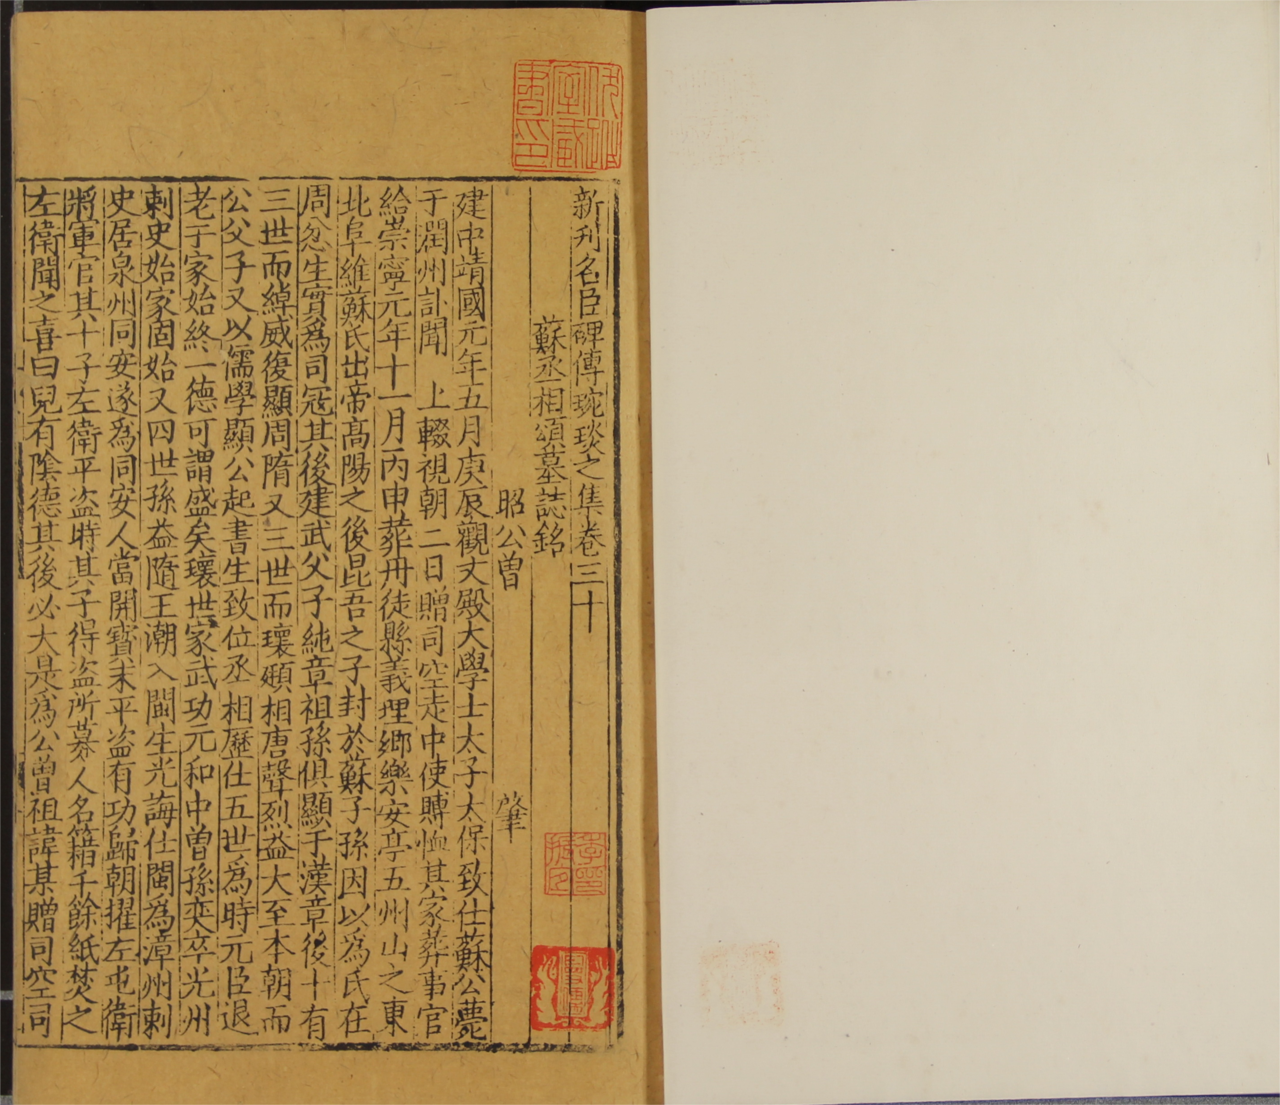 新刋名臣碑傳琬琰之集卷三十
蘇丞相頌墓誌銘
昭公曽 肇
建中靖國元年五月庚辰觀文殿大學士太子太保致仕蘇公薨
于潤州訃聞 上輟視朝二日贈司空走中使賻恤其家葬事官
給崇寧元年十一月丙申葬丹徒縣義理鄉樂安亭五州山之東
北阜維蘇氏出帝髙陽之後昆吾之子封於蘇子孫因以爲氏在
周忿生實爲司冦其後建武父子純章祖孫俱顯于漢章後十有
三世而綽威復顯周隋又三世而瓌頲相唐聲烈益大至本朝而
公父子又以儒學顯公起書生致位丞相歷仕五世爲時元臣退
老于家始終一德可謂盛矣瓌世家武功元和中曽孫奕卒光州
刺史始家固始又四世孫益隨王潮入閩生光誨仕閩爲漳州刺
史居泉州同安遂爲同安人當開寳末平盗有功歸朝擢左屯衛
將軍官其十子左衛平盗時其子得盗所募人名籍千餘紙焚之
左衛聞之喜曰兒有陰德其後必大是爲公曽祖諱某贈司空司